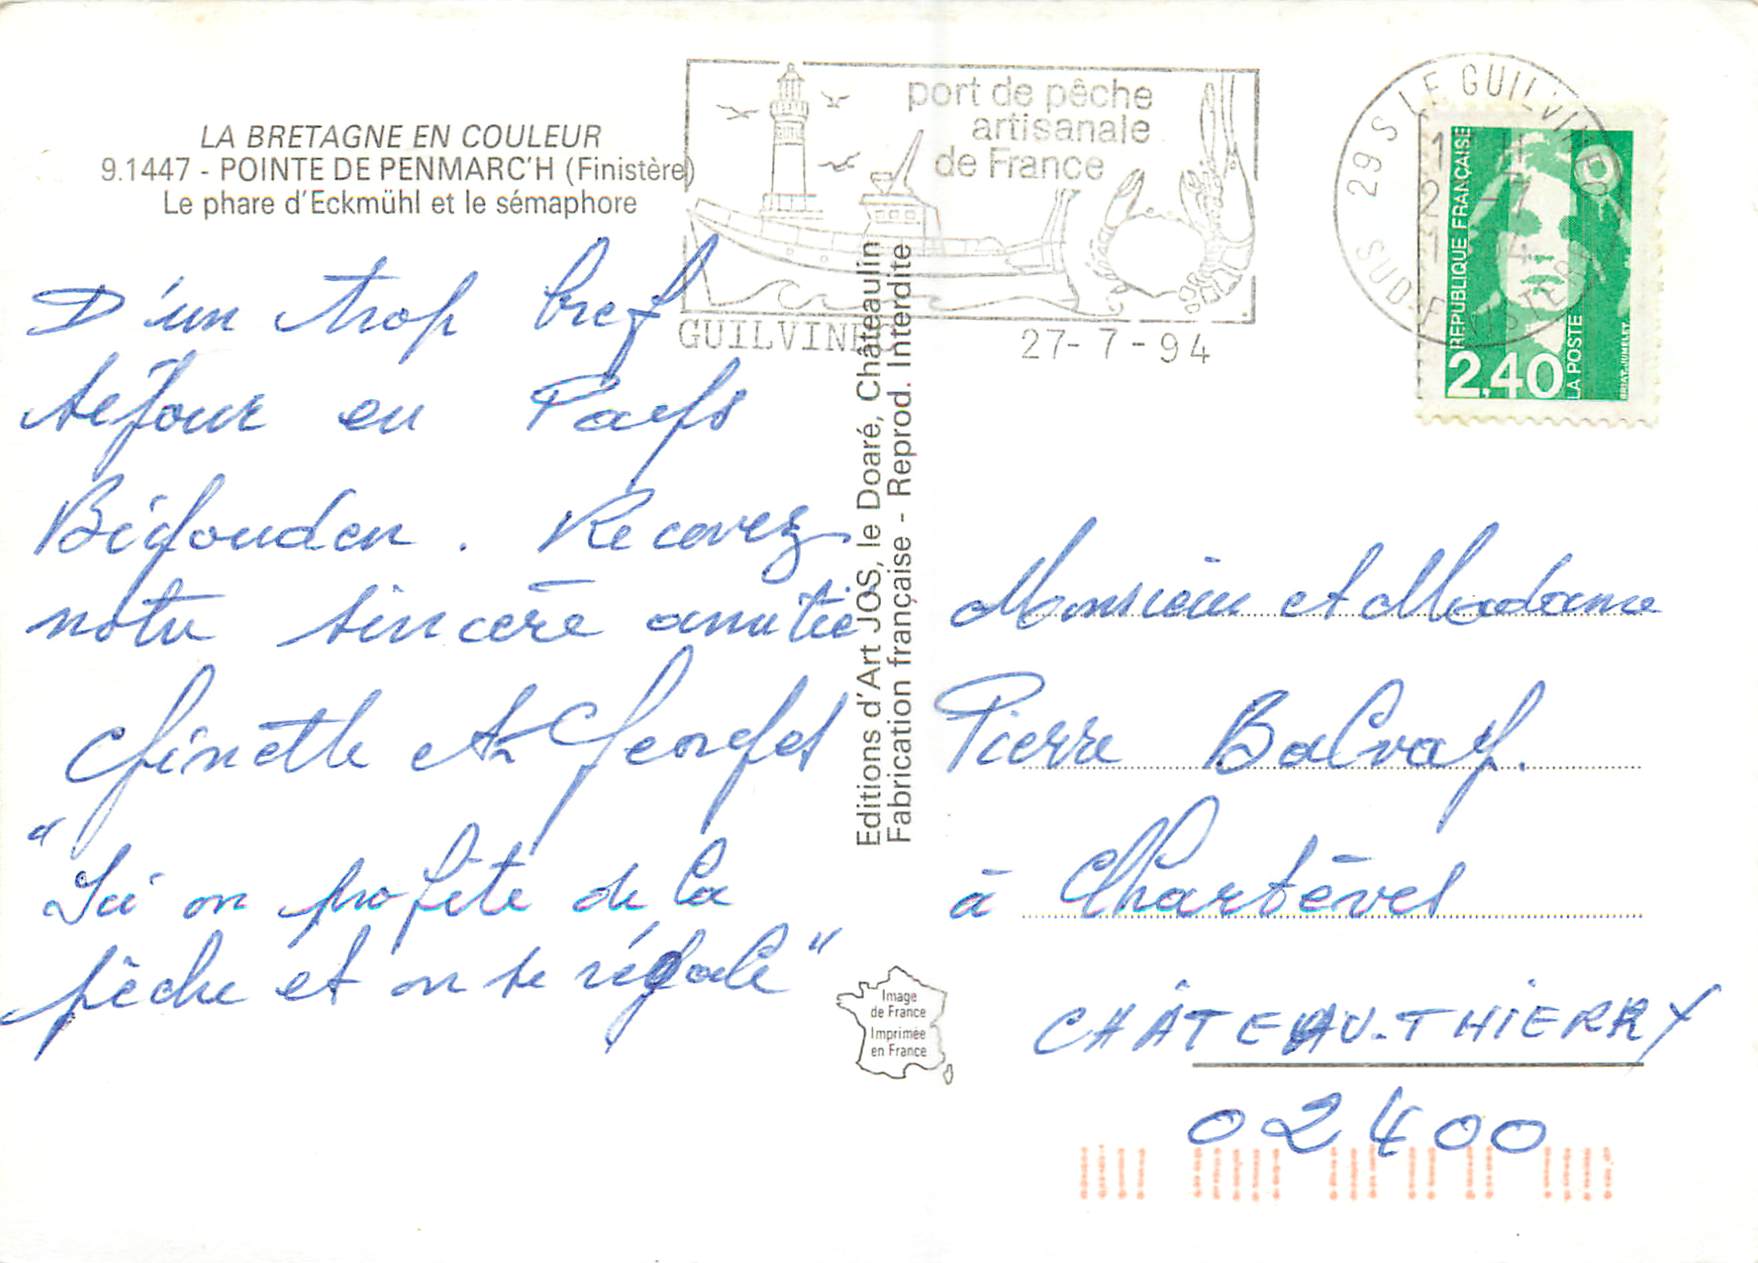 LA BRETAGNE EN COULEUR
9.1447 - POINTE DE PENMARC'H (Finistère)
Le phare d'Eckmühl et le sémaphore
D'un trop bref
séjour en Pays
Bigouden. Recevez
notre sincère amitié
Ginette et Georges
"Ici on profite de la
pêche et on se régale"
port de pêche
artisanale
de France
GUILVINEC
27-7-94
29 S LE GUILVINEC
SUD-FINISTERE
REPUBLIQUE FRANÇAISE
2,40
LA POSTE
BRIAT.JUMELET
Editions d'Art JOS, le Doaré, Châteaulin
Fabrication française - Reprod. Interdite
Monsieur et Madame
Pierre
à Chartèves
CHÂTEAU-THIERRY
02400
Image
de France
Imprimée
en France